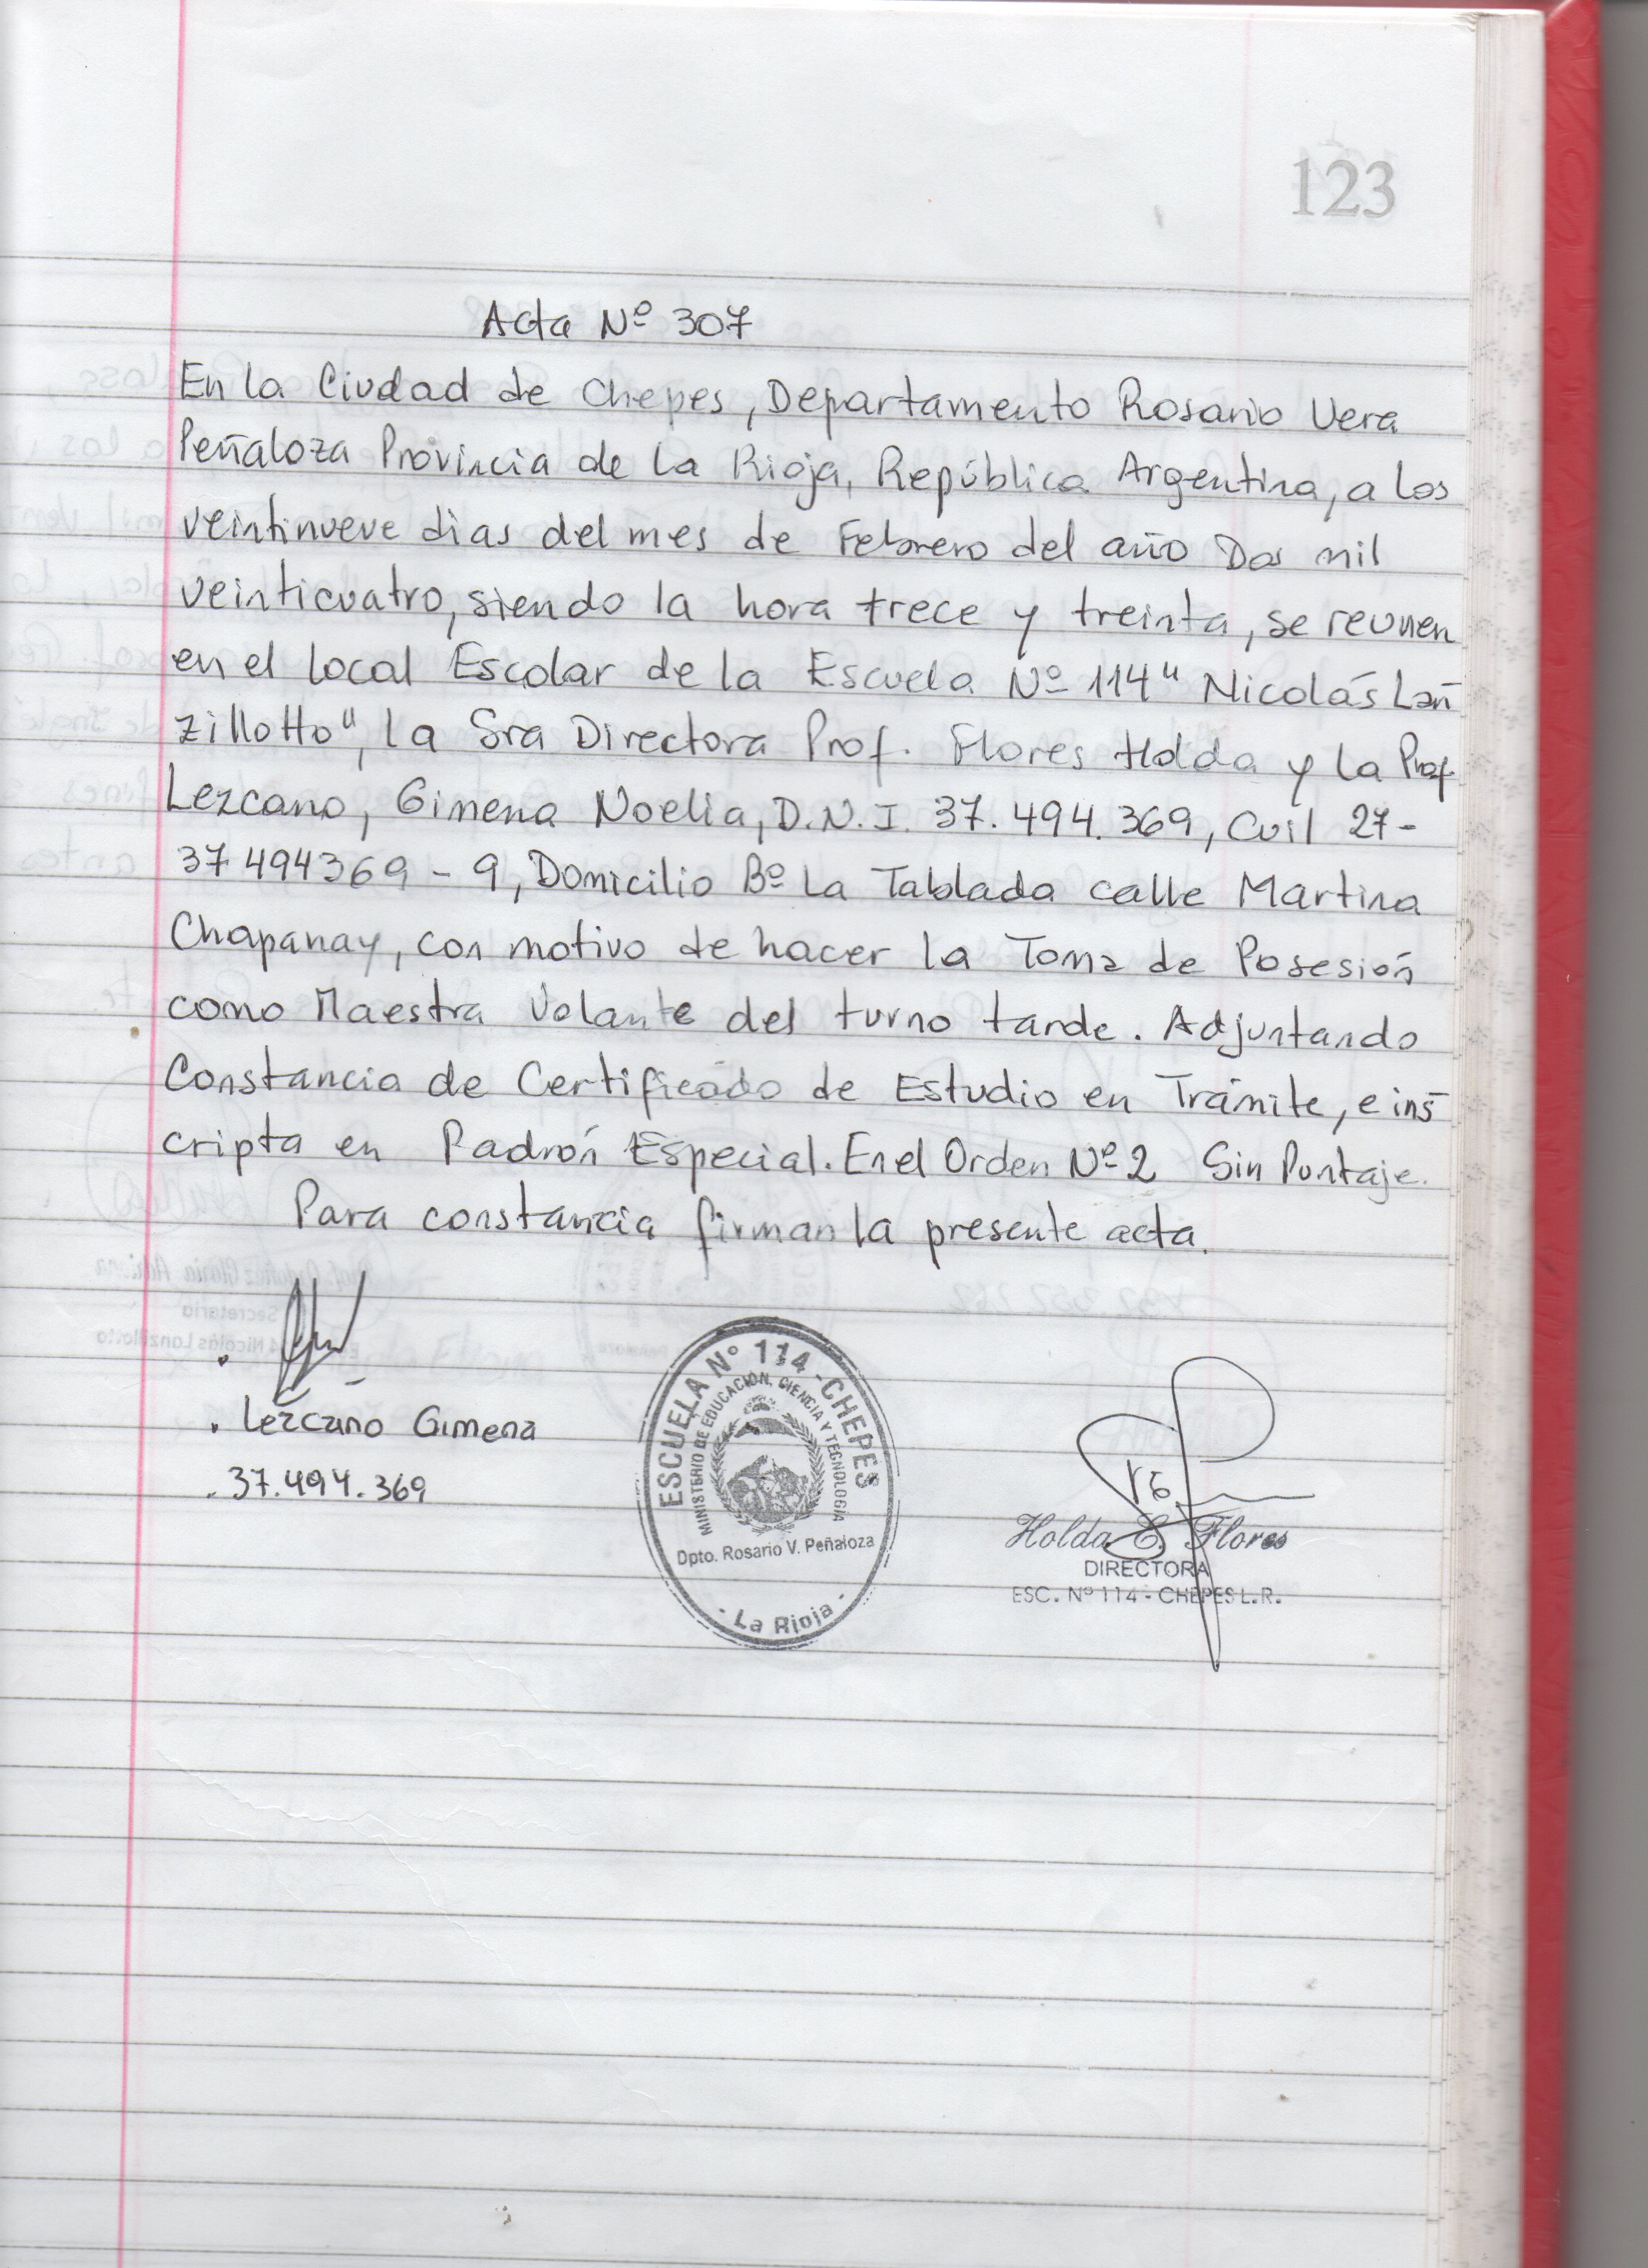 123
Acta Nº 307
En la Ciudad de Chepes, Departamento Rosario Vera
Peñaloza Provincia de La Rioja, República Argentina, a los
veintinueve dias del mes de Febrero del año Dos mil
veinticuatro, siendo la hora trece y treinta, se reunen
en el local Escolar de la Escuela Nº 114 " Nicolás Lan
zillotto", la Sra Directora Prof. Flores Holda y la Prof.
Lezcano, Gimena Noelia, D.N.I. 37.494.369, Cuil 27-
37494369-9, Domicilio Bº La Tablada calle Martina
Chapanay, con motivo de hacer la Toma de Posesión
como Maestra Volante del turno tarde. Adjuntando
Constancia de Certificado de Estudio en Trámite, e ins
cripta en Padrón Especial. En el Orden Nº 2 Sin Puntaje.
Para constancia firman la presente acta.
Lezcano Gimena
37.494.369
ESCUELA Nº 114 - CHEPES
MINISTERIO DE EDUCACIÓN, CIENCIA Y TECNOLOGIA
Dpto. Rosario V. Peñaloza
- La Rioja -
Holda E. Flores
DIRECTORA
ESC. Nº 114 - CHEPES L.R.